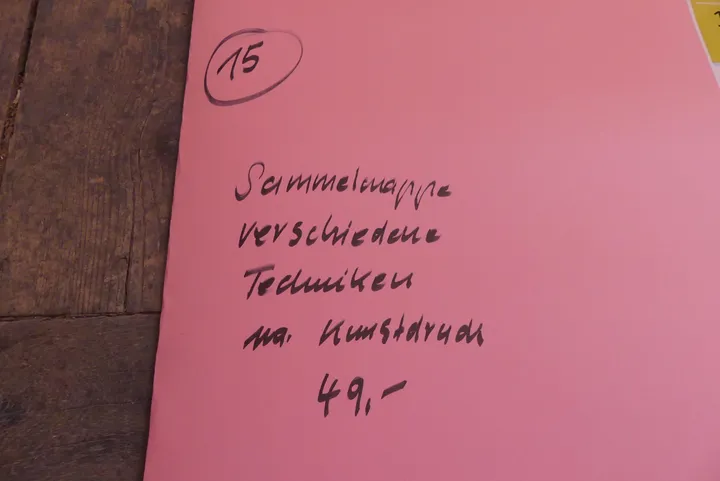 15
Sammelmappe
verschiedene
Techniken
ua. Kunstdruck
49,-